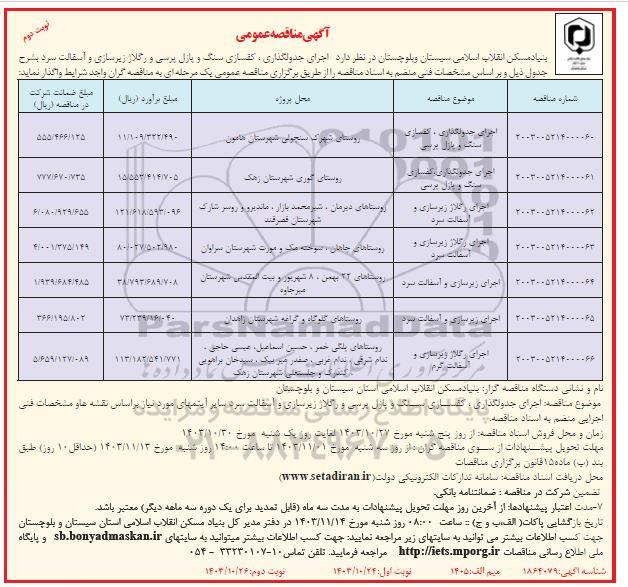 نوبت دوم
آگهی مناقصه عمومی
بنیادمسکن انقلاب اسلامی سیستان وبلوچستان در نظر دارد اجرای جدولگذاری ، کفسازی سنگ و پازل پرسی و رگلاژ زیرسازی و آسفالت سرد بشرح
جدول ذیل و بر اساس مشخصات فنی منضم به اسناد مناقصه را از طریق برگزاری مناقصه عمومی یک مرحله ای به مناقصه گران واجد شرایط واگذار نماید:
شماره مناقصه موضوع مناقصه محل پروژه مبلغ برآورد (ریال) مبلغ ضمانت شرکت در مناقصه (ریال)
۲۰۰۳۰۰۵۲۱۴۰۰۰۰۶۰ اجرای جدولگذاری ، کفسازی سنگ و پازل پرسی روستای شهرک سنچولی شهرستان هامون ۱۱/۱۰۹/۳۲۲/۴۹۰ ۵۵۵/۴۶۶/۱۲۵
۲۰۰۳۰۰۵۲۱۴۰۰۰۰۶۱ اجرای جدولگذاری،کفسازی سنگ و پازل پرسی روستای گوری شهرستان زهک ۱۵/۵۵۳/۴۱۴/۷۰۵ ۷۷۷/۶۷۰/۷۳۵
۲۰۰۳۰۰۵۲۱۴۰۰۰۰۶۲ اجرای رگلاژ زیرسازی و آسفالت سرد روستاهای دیرمان ، شیرمحمد بازار ، ماندیرو و روسر شارک شهرستان قصرقند ۱۲۱/۶۱۸/۵۹۳/۰۹۶ ۶/۰۸۰/۹۲۹/۶۵۵
۲۰۰۳۰۰۵۲۱۴۰۰۰۰۶۳ اجرای رگلاژ زیرسازی و آسفالت سرد روستاهای جاهان ، سوخته مک و مورت شهرستان سراوان ۸۰/۰۲۷/۵۰۲/۹۸۰ ۴/۰۰۱/۳۷۵/۱۴۹
۲۰۰۳۰۰۵۲۱۴۰۰۰۰۶۴ اجرای زیرسازی و آسفالت سرد روستاهای ۲۲ بهمن ، ۸ شهریور و بیت المقدس شهرستان میرجاوه ۳۸/۷۹۳/۶۸۹/۷۰۸ ۱/۹۳۹/۶۸۴/۴۸۵
۲۰۰۳۰۰۵۲۱۴۰۰۰۰۶۵ اجرای زیرسازی و آسفالت سرد روستاهای گلوگاه و گراغه شهرستان زاهدان ۷۳/۲۳۹/۱۶/۰۴۰ ۳۶۶/۱۹۵/۸۰۲
۲۰۰۳۰۰۵۲۱۴۰۰۰۰۶۶ اجرای رگلاژ زیرسازی و آسفالت گرم روستاهای بلگی خمر ، صفدر میر بیک ، سیدخان براهویی شهرستان زهک ۱۱۳/۱۸۲/۵۴۱/۷۷۱ ۵/۶۵۹/۱۲۷/۰۸۹
نام و نشانی دستگاه مناقصه گزار: بنیادمسکن انقلاب اسلامی استان سیستان و بلوچستان
موضوع مناقصه: اجرای جدولگذاری ، کفسازی سنگ و پازل پرسی و رگلاژ زیرسازی و آسفالت سرد سایر آیتمهای مورد نیاز براساس نقشه هاو مشخصات فنی
اجرایی منضم به اسناد مناقصه
زمان و محل فروش اسناد مناقصه: از روز پنج شنبه مورخ ۱۴۰۳/۱۰/۲۷ لغایت روز یک شنبه مورخ ۱۴۰۳/۱۰/۳۰
مهلت تحویل پیشنهادات از سوی مناقصه گران : از روز سه شنبه مورخ ۱۴۰۳/۱۱/۰۱ تا ساعت ۱۴:۰۰ روز شنبه مورخ ۱۴۰۳/۱۱/۱۳ (حداقل ۱۰ روز) طبق
بند (ب) ماده ۱۵قانون برگزاری مناقصات
محل دریافت اسناد مناقصه: سامانه تدارکات الکترونیکی دولت(www.setadiran.ir)
تضمین شرکت در مناقصه : ضمانتنامه بانکی.
۷-مدت اعتبار پیشنهادها: از آخرین روز مهلت تحویل پیشنهادات به مدت سه ماه (قابل تمدید برای یک دوره سه ماهه دیگر) معتبر باشد.
تاریخ بازگشایی پاکات( الف،ب و ج) = ساعت ۰۸:۰۰ روز شنبه مورخ ۱۴۰۳/۱۱/۱۴ در دفتر مدیر کل بنیاد مسکن انقلاب اسلامی استان سیستان و بلوچستان
جهت کسب اطلاعات بیشتر می توانید به سایتهای زیر مراجعه نمایید: جهت کسب اطلاعات بیشتر میتوانید به سایتهای sb.bonyadmaskan.ir و پایگاه
ملی اطلاع رسانی مناقصات http://iets.mporg.ir مراجعه فرمایید. تلفن تماس۱۰-۳۳۲۳۰۱۰۷ - ۰۵۴
شناسه آگهی: ۱۸۶۴۰۷۹ میم الف: ۱۴۰۵ نوبت اول: ۱۴۰۳/۱۰/۲۴ نوبت دوم: ۱۴۰۳/۱۰/۲۶
ParsNamadData